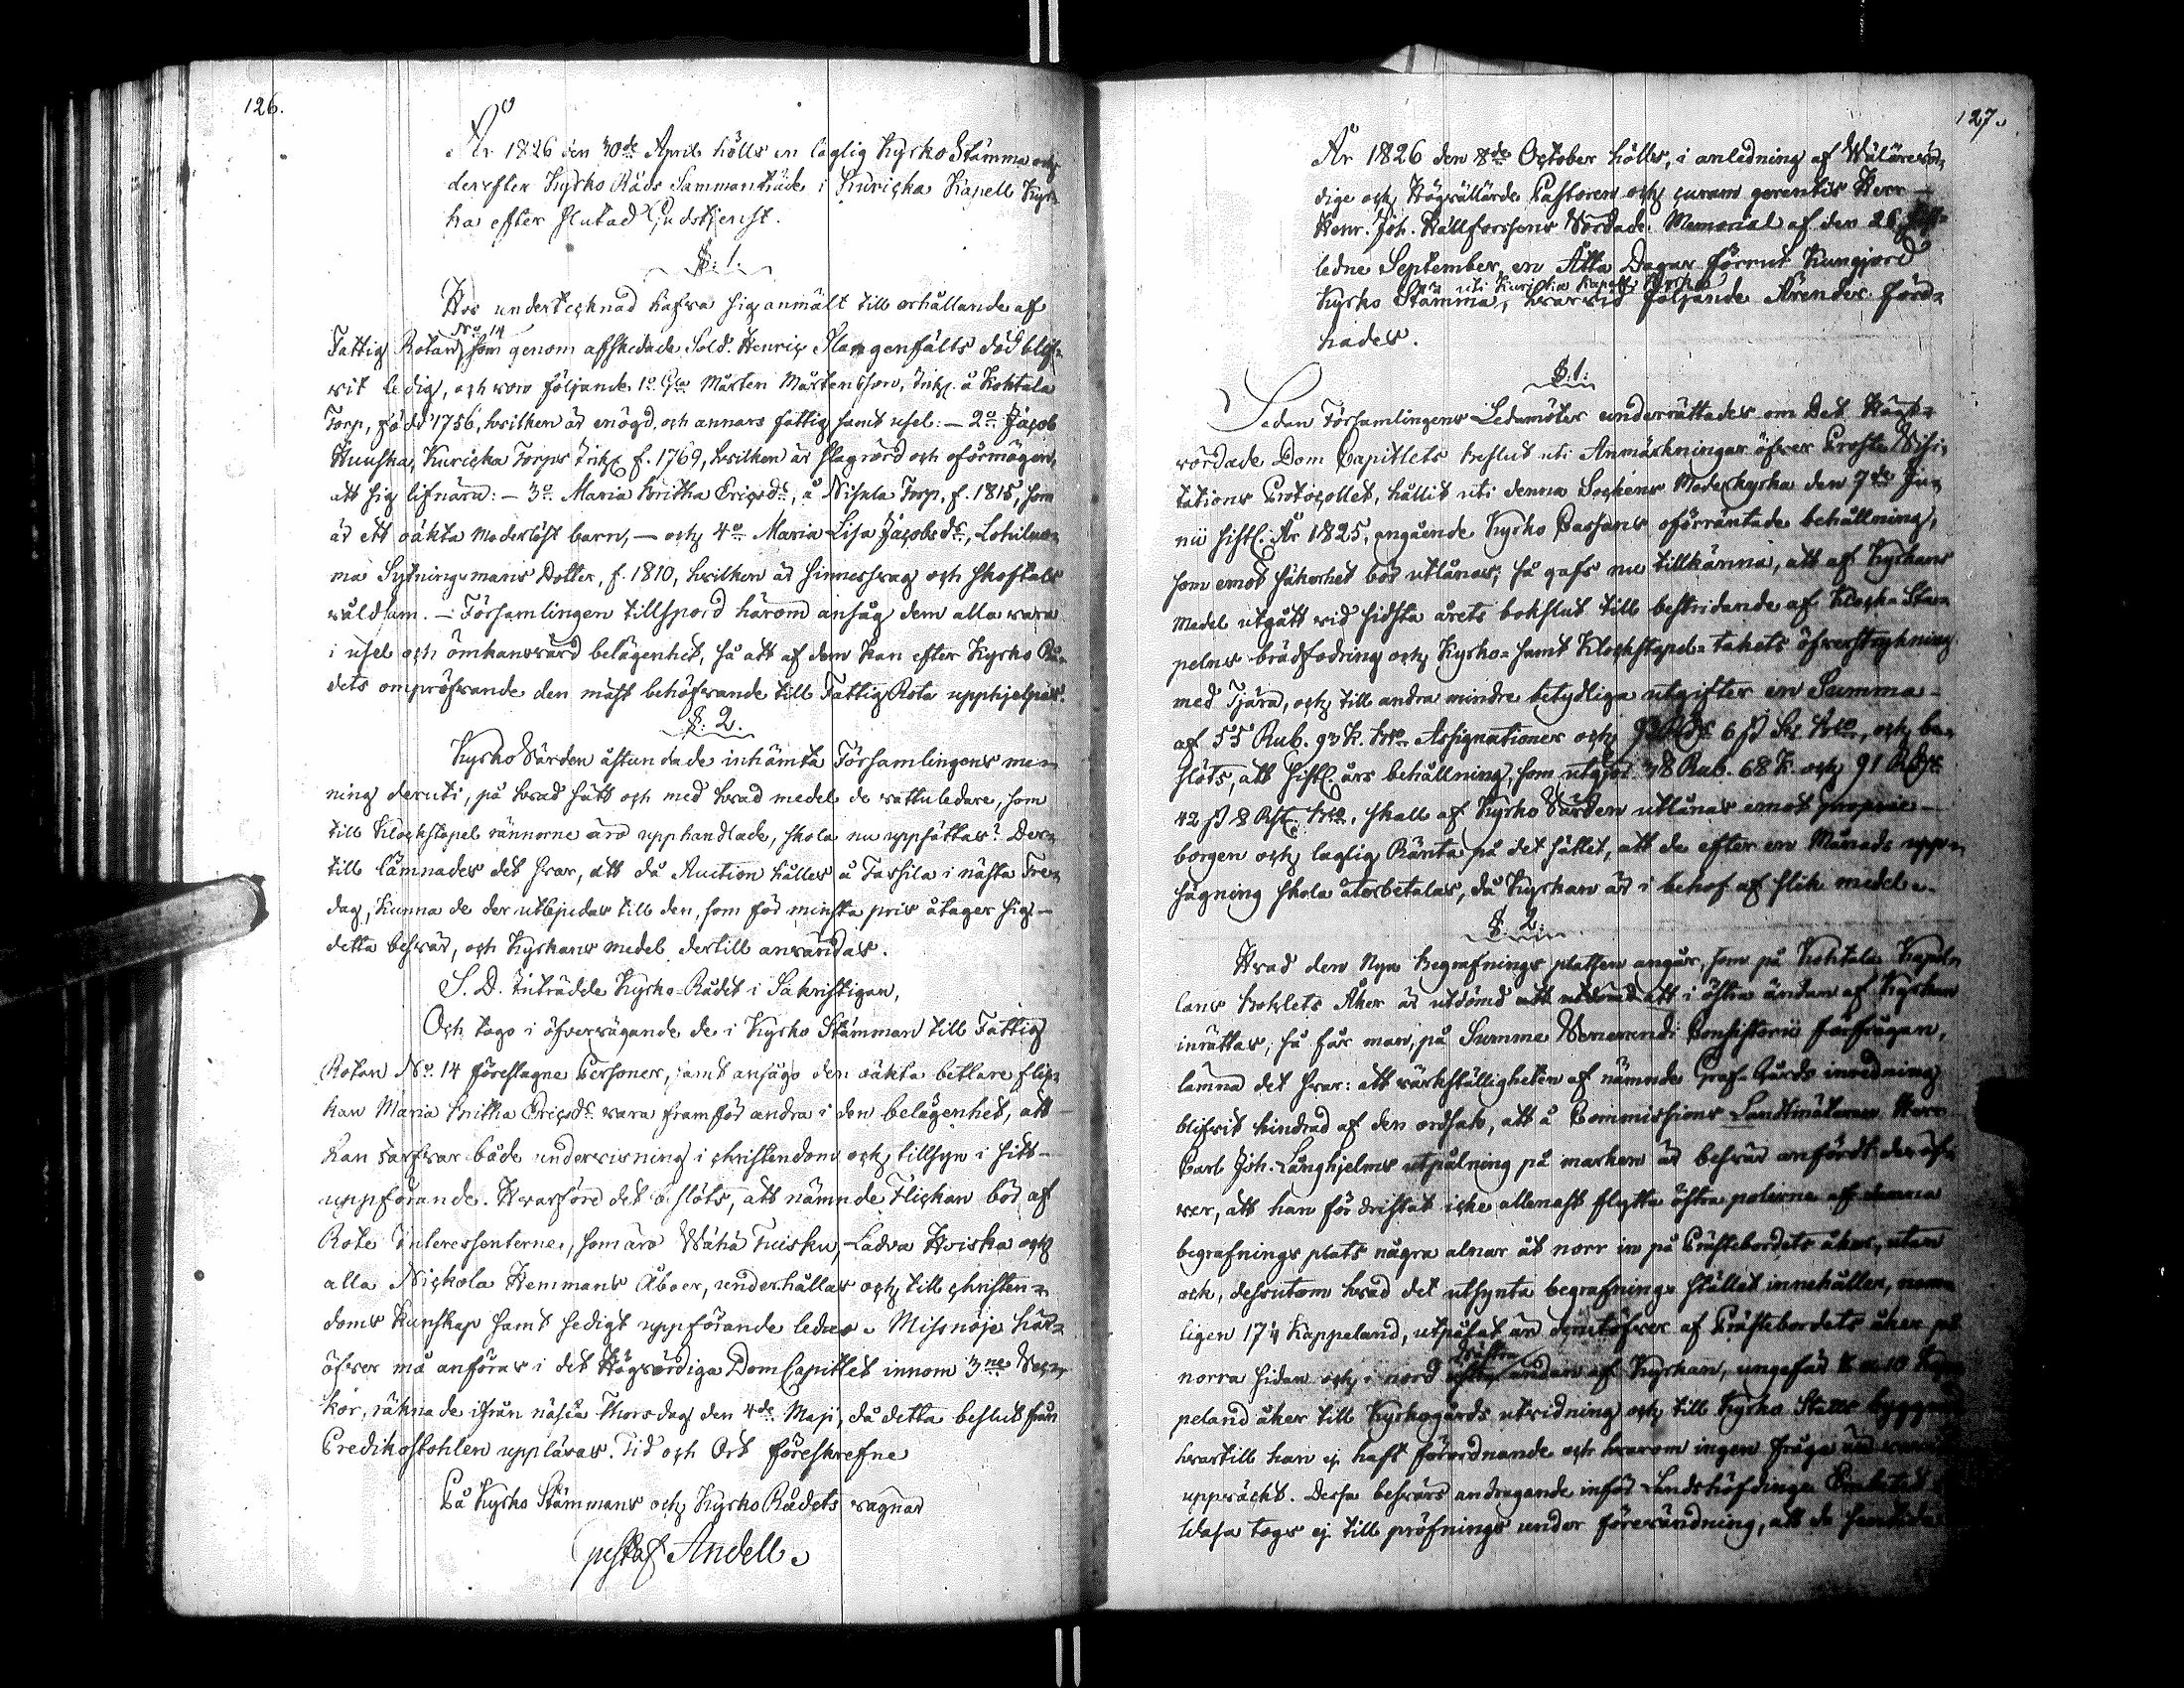 126.
År 1826 den 30de April hölls en laglig Kyrko Stämma och
derefter Kyrko Råds Sammanträde i Kuricka Kapell Kyr=
ka efter slutad Gudstjenst.
§. 1.
Hos undertecknad hafva sig anmält till erhållande af
No 14
Fattig Rotan, som genom afskedade Sold. Henric Slangenfälts död blif=
vit ledig, och voro följande 1o Gla Mårten Mårtensson, Inh. å Kohtala
Torp, född 1756, hvilken är enögd, och annars fattig samt usel: — 2o Jacob
Huuska, Kuricka Torps Inh. f. 1769, hvilken är slagrörd och oförmögen,
att sig lifnära: — 3o Maria Britha Ericsdr, å Nisula Torp, f. 1815, som
är ett oäkta moderlöst barn, — och 4o Maria Lisa Jacobsdr, Lohiluo=
ma Sytningsmans Dotter, f. 1810, hvilken är sinnessvag och skoftals
våldsam. — Församlingen tillspord härom ansåg dem alla vara
i usel och ömkansvärd belägenhet, så att af dem kan efter Kyrko Rå=
dets ompröfvande den mäst behöfvande till Fattig Rota upphjelpas.
§. 2.
Kyrko Värden åstundade inhämta Församlingens me=
ning deruti, på hvad sätt och med hvad medel de vattuledare, som
till Klockstapel rännorne äro upphandlade, skola nu uppsättas? Der=
till lämnades det svar, att då Auction hålles å Tassila i nästa Fre=
dag, kunna de der utbjudas till den, som för minsta pris åtager sig
detta besvär, och Kyrkans medel dertill användas.
S. D. Inträdde Kyrko-Rådet i Sakristigan,
Och togo i öfvervägande de i Kyrko Stämman till Fattig
Rotan No. 14 föreslagne Personer, samt ansågo den oäkta betlare flic=
kan Maria Britha Ericsdr vara framför andra i den belägenhet, att
han tarfvar både undervisning i christendom och tillsyn i sitt
uppförande. Hvarföre det beslöts, att nämnde Flickan bör af
Rote Interessenterne, som äro Wähä Tuisku, Ladva Hviska och
alla Nickola Hemmans Åboer, underhållas och till christen=
doms kunskap samt sedigt uppförande ledas. Missnöje här=
öfver må anföras i det Högvördiga DomCapitlet innom 3ne Vec=
kor, räknade ifrån nästa Thorsdag den 4de Maji, då detta beslut från
Predikostohlen uppläses. Tid och Ort föreskrefne
På Kyrko Stämmans och Kyrko Rådets vägnar
Gustaf Andell.
127.
År 1826 den 8de October hölls, i anledning af Wälärevör=
dige och Högvällärde Pastoren och curam gerentis Herr
Henr. Joh. Hällforssens Vördade Memorial af den 26 sist=
ledne September, en Åtta Dagar förrut Kungjord
uti Kuricka Kapell Kyrka
Kyrko Stämma, hvarvid följande Ärender förd=
nades.
§. 1.
Sedan Församlingens Ledamöter underrättades om Det Högt=
vördade Dom Capitlets beslut uti Anmärkningar öfver Prosta Visi=
tations Protocollet, hållit uti denna Sockens Moderkyrka den 7de Ju=
nii sistl. År 1825, angående Kyrko Cassans oförräntade behållning,
som emot säkerhet bör utlånas; så gafs nu tillkänna, att af Kyrkans
Medel utgått vid sidsta årets bokslut till bestridande af Klocka Sta=
pelns brädfodring och Kyrko= samt Klockstapel=takets öfverstrykning
med Tjära, och till andra mindre betydliga utgifter en Summa
af 55 Rub. 93 K. Bco Assignationer och 6 ß Sv. Bco, och be=
slöts, att sistl. års behållning, som utgjör 38 Rub. 68 K. och 91 Rdr
42 ß 8 Rst. Bco, skall af Kyrko Värden utlånas emot proprie
borgen och laglig Ränta på det sättet, att de efter en Månads upp=
sägning skola återbetalas, då Kyrkan är i behof af slik medel.
§. 2.
Hvad den Nya Begrafnings platsen angår, som på Kohtala Kapel=
lans Bohlets Åker är utdömd att i östra ändan af Kyrkan
inrättas, så får man, på Summe Venerandi Consistorii förfrågan,
lämna det svar: att värkställigheten af nämnde Graf-Gårds inredning
blifvit hindrad af den ordsak, att å Commissions Landtmätaren Herr
Carl Joh. Långhjelms utpålning på marken är besvär anfördt deröf=
ver, att han fördristat icke allenast flytta östra pålarna af denna
begrafnings plats några alnar åt norr in på Prästebordets åker, utan
ock, dessutom hvad det utsynta begrafnings stället innehåller, nem=
ligen 17¼ Kappeland, utpålat än derutöfver af Prästebordets åker på
västra
norra sidan och i nord ändan af Kyrkan, ungefär 10 Kap=
peland åker till Kyrkogårds utvidning och till Kyrko Stalls byggnad
hvartill han ej haft förordnande och hvarom ingen fråga
uppväckt. Dessa besvärs andragande inför Landshöfdinge Embetet i
Wasa togs ej till pröfnings under förevändning, att de